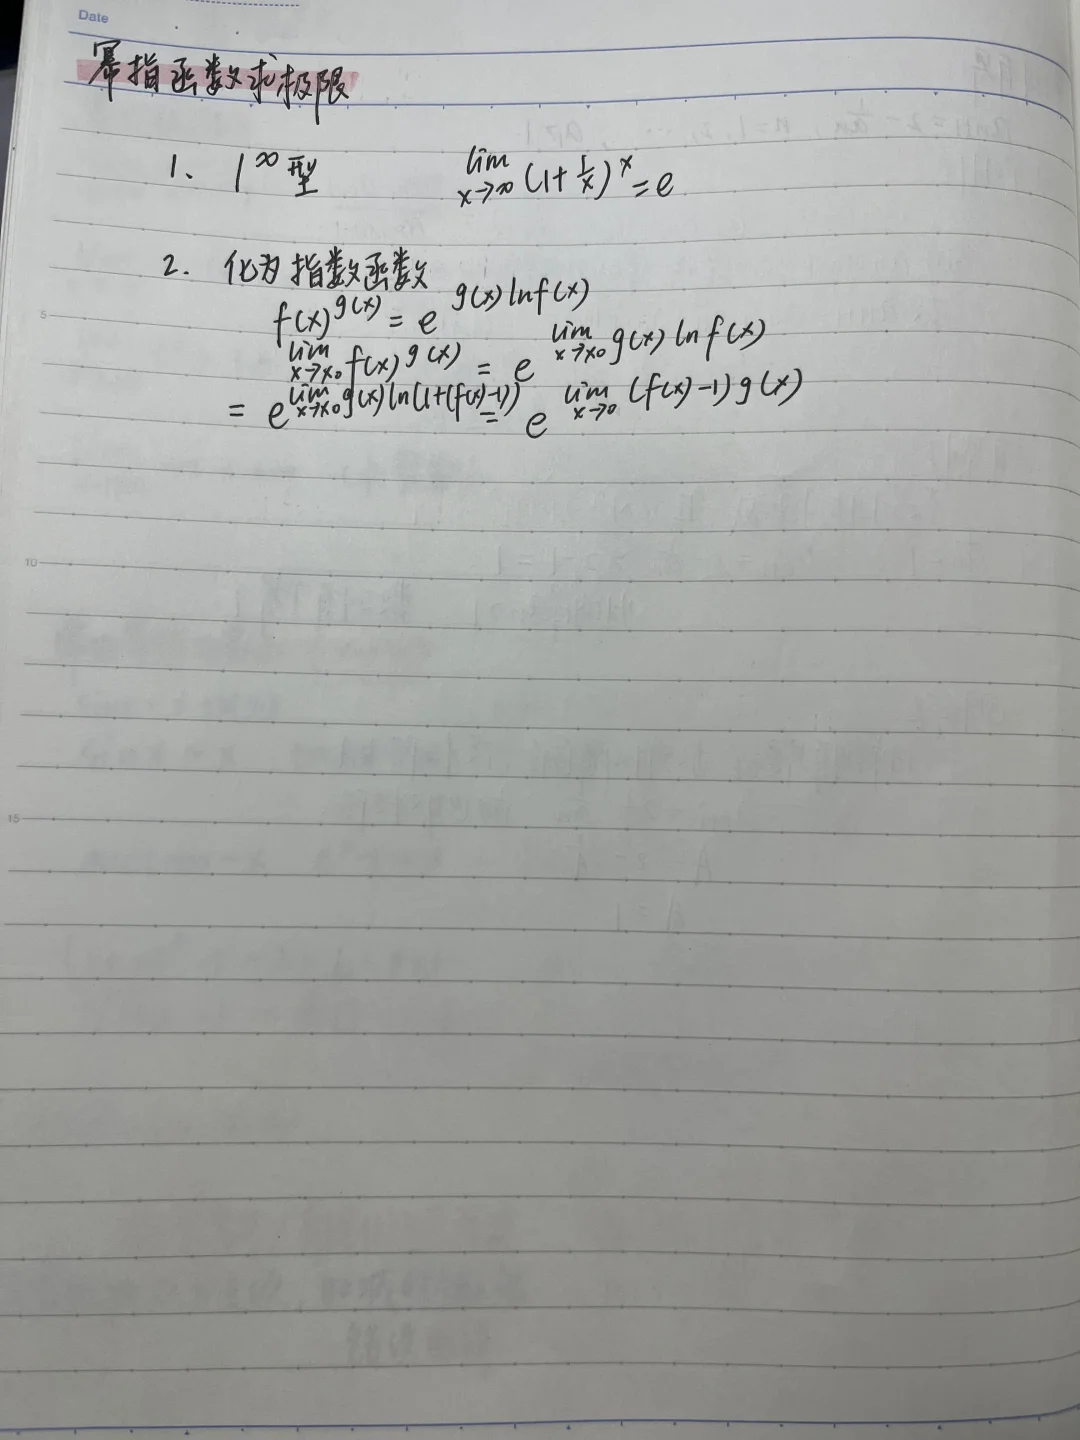 Date
幂指函数求极限
1. 1^∞型 lim x→∞ (1+1/x)^x = e
2. 化为指数函数
f(x)^g(x) = e^g(x)lnf(x)
lim x→x0 f(x)^g(x) = e^lim x→x0 g(x)lnf(x)
= e^lim x→x0 g(x)ln(1+(f(x)-1)) = e^lim x→0 (f(x)-1)g(x)
5
10
15